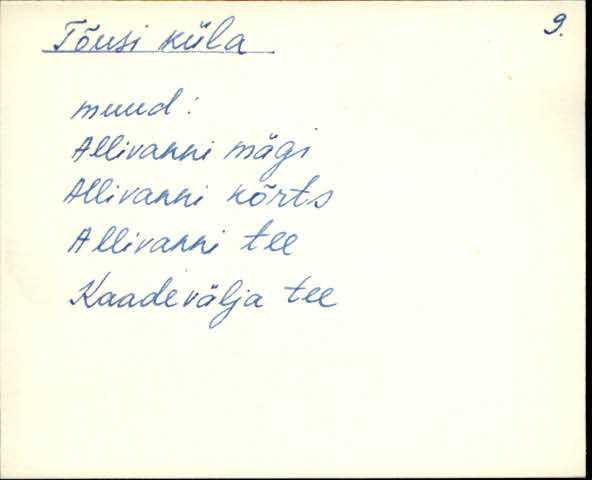 Tõusi küla 9.
muud:
Allivanni mägi
Allivanni kõrts
Allivanni tee
Kaadevälja tee